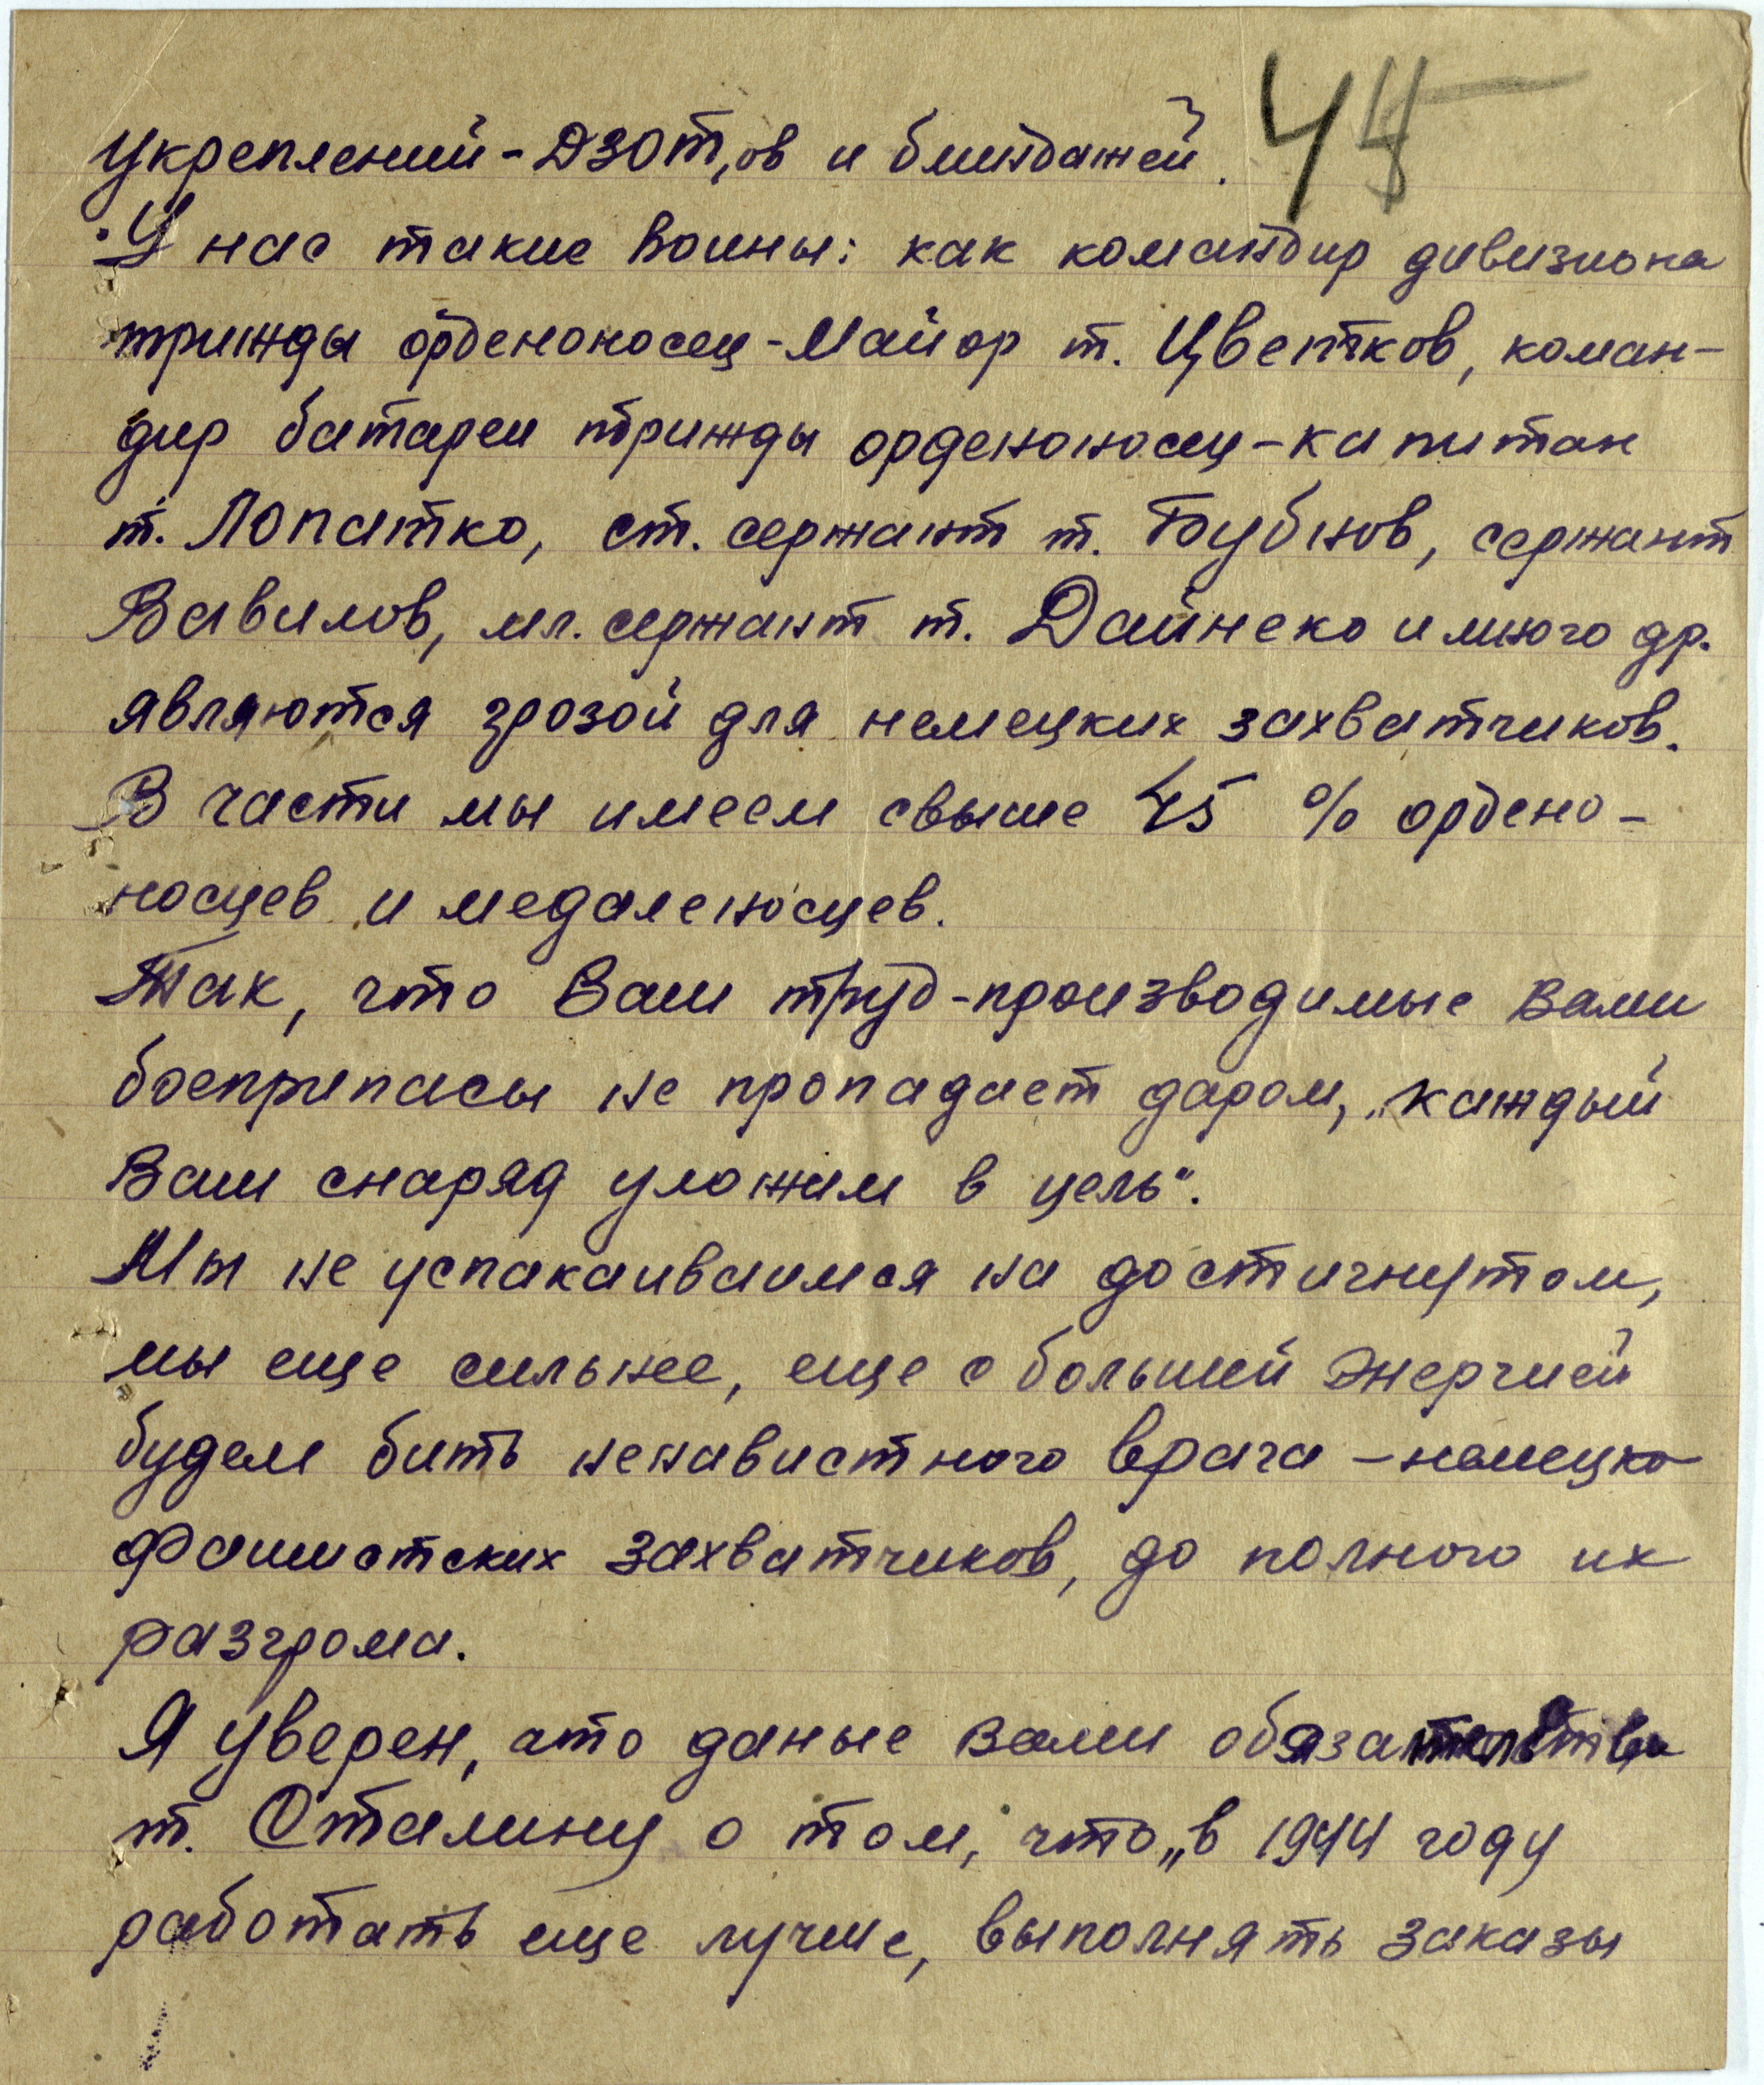 45
укреплений-ДЗОТ,ов и блиндажей.
У нас такие воины: как командир дивизиона
трижды орденоносец-Майор т. Цветков, коман-
дир батареи трижды орденоносец-капитан
т. Лопатко, ст. сержант т. Бубнов, сержант
Вавилов, мл. сержант т. Дайнеко и много др.
являются грозой для немецких захватчиков.
В части мы имеем свыше 45 % ордено-
носцев и медаленосцев.
Так, что Ваш труд-производимые Вами
боеприпасы не пропадает даром, „каждый
Ваш снаряд уложим в цель".
Мы не успакаиваимся на достигнутом,
мы еще сильнее, еще с большей энергией
будем бить ненавистного врага - немецко
фашистских захватчиков, до полного их
разгрома.
Я уверен, что даные Вами обязательства
т. Сталину о том, что „в 1944 году
работать еще лучше, выполнять заказы